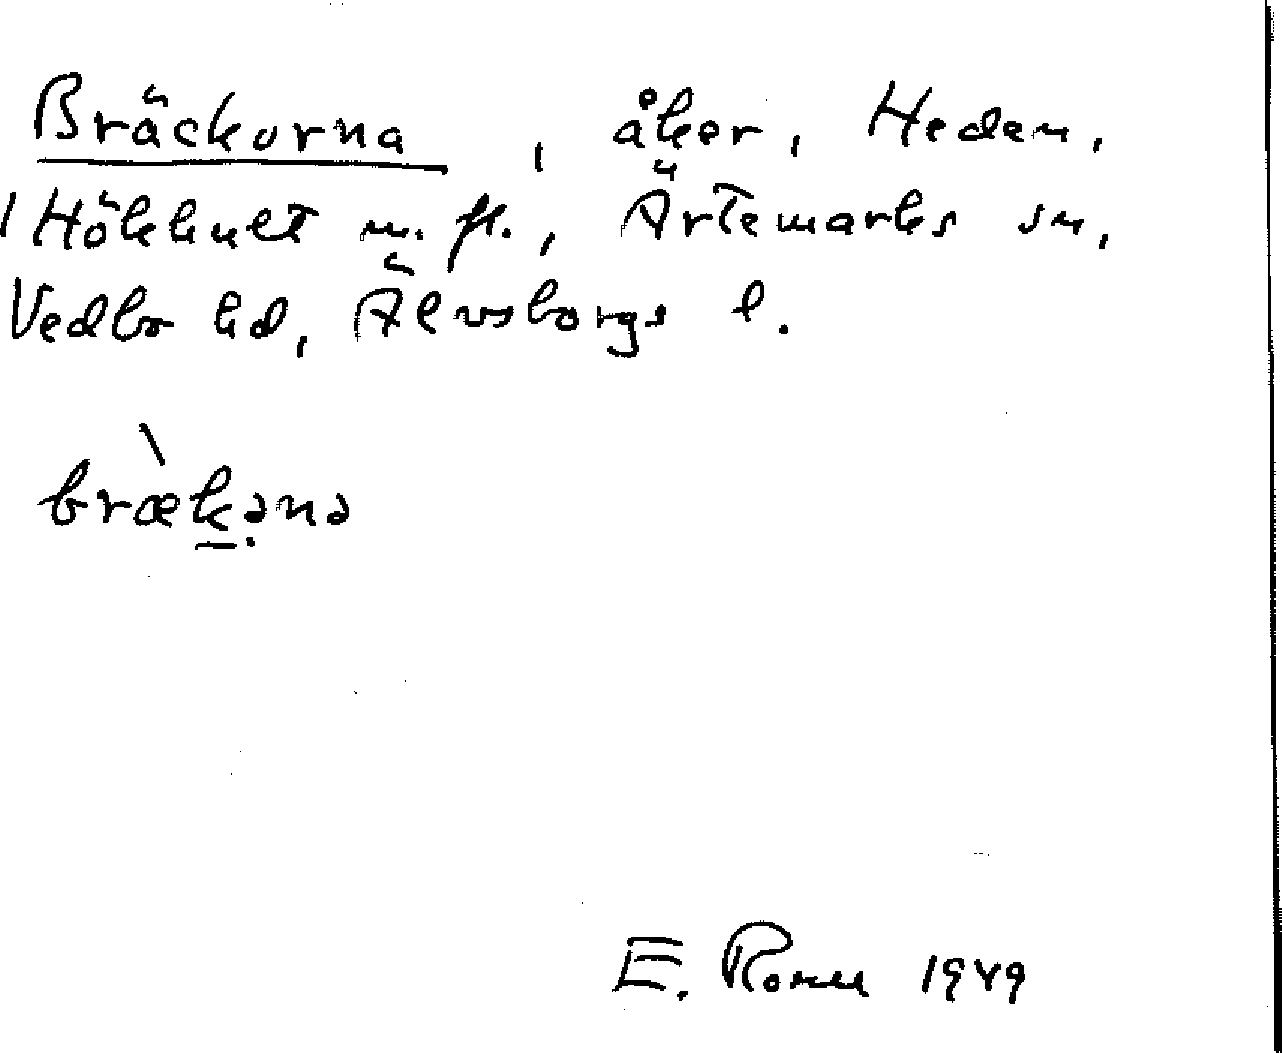 Bräckorna, åker, Heden,
Hökhult m. fl., Ärtemarks sn,
Vedbo hd, Älvsborgs l.
bræ̀kə̣nə
E. 1949